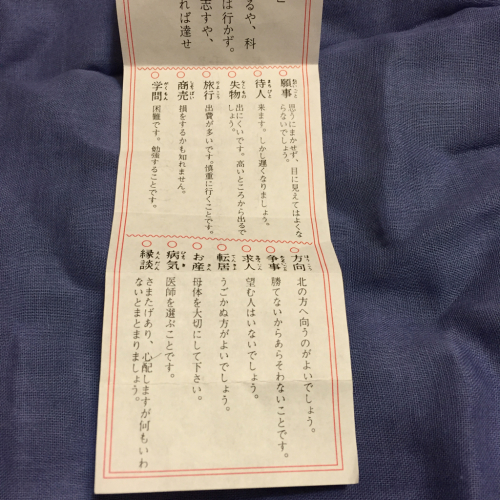 るや、科
は行かず。
志すや、
れば達せ
○願事 思うにまかせず、目に見えてはよくな
らないでしょう。
○待人 来ます。しかし遅くなりましょう。
○失物 出にくいです。高いところから出るで
しょう。
○旅行 出費が多いです。慎重に行くことです。
○商売 損をするかも知れません。
○学問 困難です。勉強することです。
○方向 北の方へ向うのがよいでしょう。
○争事 勝てないからあらそわないことです。
○求人 望む人はいないでしょう。
○転居 うごかぬ方がよいでしょう。
○お産 母体を大切にして下さい。
○病気 医師を選ぶことです。
○縁談 さまたげあり、心配しますが何もいわ
ないとまとまりましょう。